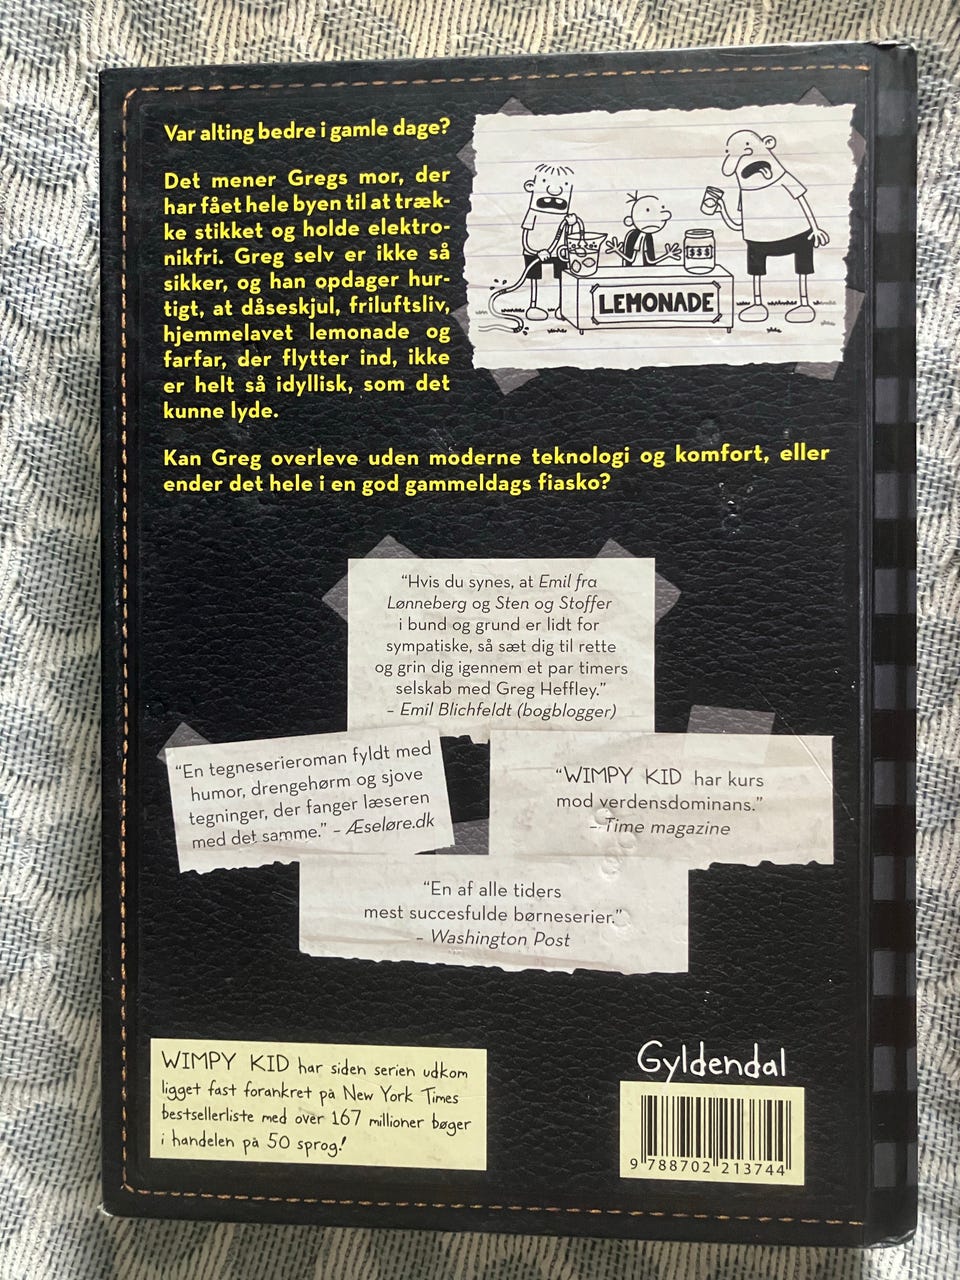 Var alting bedre i gamle dage?
Det mener Gregs mor, der
har fået hele byen til at træk-
ke stikket og holde elektro-
nikfri. Greg selv er ikke så
sikker, og han opdager hur-
tigt, at dåseskjul, friluftsliv,
hjemmelavet lemonade og
farfar, der flytter ind, ikke
er helt så idyllisk, som det
kunne lyde.
$$$
LEMONADE
Kan Greg overleve uden moderne teknologi og komfort, eller
ender det hele i en god gammeldags fiasko?
“Hvis du synes, at Emil fra
Lønneberg og Sten og Stoffer
i bund og grund er lidt for
sympatiske, så sæt dig til rette
og grin dig igennem et par timers
selskab med Greg Heffley.”
– Emil Blichfeldt (bogblogger)
“En tegneserieroman fyldt med
humor, drengehørm og sjove
tegninger, der fanger læseren
med det samme.” – Æseløre.dk
“WIMPY KID har kurs
mod verdensdominans.”
– Time magazine
“En af alle tiders
mest succesfulde børneserier.”
– Washington Post
WIMPY KID har siden serien udkom
ligget fast forankret på New York Times
bestsellerliste med over 167 millioner bøger
i handelen på 50 sprog!
Gyldendal
9 788702 213744